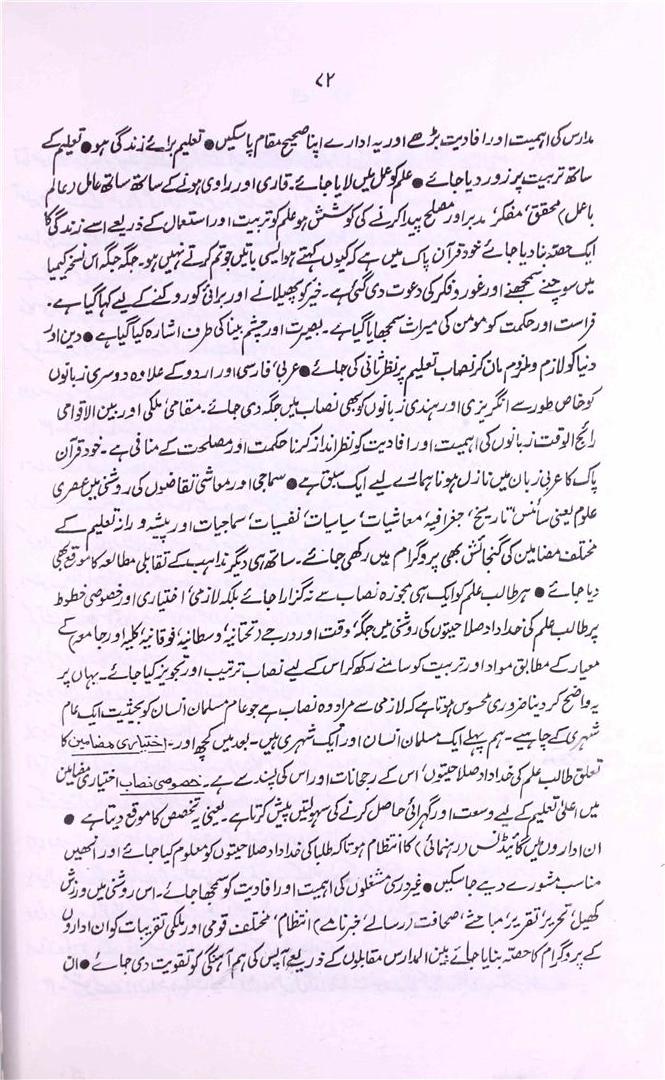 ۷۲
مدارس کی اہمیت اور افادیت بڑھے اور یہ ادارے اپنا صحیح مقام پا سکیں ● تعلیم برائے زندگی ہو ● تعلیم کے
ساتھ تربیت پر زور دیا جائے ● علم کو عمل میں لایا جائے۔ قاری اور راوی ہونے کے ساتھ ساتھ عامل (عالم
باعمل) محقق، مفکر، مدبر اور مصلح پیدا کرنے کی کوشش ہو علم کو تربیت اور استعمال کے ذریعے اسے زندگی کا
ایک حصّہ بنا دیا جائے خود قرآن پاک میں ہے کہ کیوں کہتے ہو ایسی باتیں جو تم کرتے نہیں ہو۔ جگہ جگہ اس نسخۂ کیمیا
میں سوچنے سمجھنے اور غور و فکر کی دعوت دی گئی ہے۔ خیر کو پھیلانے اور برائی کو روکنے کے لیے کہا گیا ہے۔
فراست اور حکمت کو مومن کی میراث سمجھایا گیا ہے۔ بصیرت اور چشم بینا کی طرف اشارہ کیا گیا ہے ● دین اور
دنیا کو لازم و ملزوم مان کر نصاب تعلیم پر نظر ثانی کی جائے ● عربی، فارسی اور اردو کے علاوہ دوسری زبانوں
کو خاص طور سے انگریزی اور ہندی زبانوں کو بھی نصاب میں جگہ دی جائے۔ مقامی، ملکی اور بین الاقوامی
رائج الوقت زبانوں کی اہمیت اور افادیت کو نظر انداز کرنا حکمت اور مصلحت کے منافی ہے۔ خود قرآن
پاک کا عربی زبان میں نازل ہونا ہمارے لیے ایک سبق ہے ● سماجی اور معاشی تقاضوں کی روشنی میں عصری
علوم یعنی سائنس، تاریخ، جغرافیہ، معاشیات، سیاسیات، نفسیات، سماجیات اور پیشہ ورانہ تعلیم کے
مختلف مضامین کی گنجائش بھی پروگرام میں رکھی جائے۔ ساتھ ہی دیگر مذاہب کے تقابلی مطالعہ کا موقع بھی
دیا جائے ● ہر طالب علم کو ایک ہی مجوزہ نصاب سے نہ گزارا جائے بلکہ لازمی، اختیاری اور خصوصی خطوط
پر طالب علم کی خداداد صلاحیتوں کی روشنی میں جگہ، وقت اور درجے (تحتانیہ، وسطانیہ، فوقانیہ، کلیہ اور جامعہ) کے
معیار کے مطابق مواد اور تربیت کو سامنے رکھ کر اس کے لیے نصاب ترتیب اور تجویز کیا جائے۔ یہاں پر
یہ واضح کر دینا ضروری محسوس ہوتا ہے کہ لازمی سے مراد وہ نصاب ہے جو عام مسلمان انسان کو بحیثیت ایک عام
شہری کے چاہیے۔ ہم پہلے ایک مسلمان انسان اور ایک شہری ہیں۔ بعد میں کچھ اور۔ اختیاری مضامین کا
تعلق طالب علم کی خداداد صلاحیتوں، اس کے رجحانات اور اس کی پسند سے ہے۔ خصوصی نصاب اختیاری مضامین
میں اعلیٰ تعلیم کے لیے وسعت اور گہرائی حاصل کرنے کی سہولتیں پیش کرتا ہے۔ یعنی تخصص کا موقع دیتا ہے ●
ان اداروں میں گائیڈنس (رہنمائی) کا انتظام ہو تاکہ طلبا کی خداداد صلاحیتوں کو معلوم کیا جائے اور انھیں
مناسب مشورے دیے جا سکیں ● غیر درسی مشغلوں کی اہمیت اور افادیت کو سمجھا جائے۔ اس روشنی میں ورزش
کھیل، تحریر، تقریر، مباحثے، صحافت (رسالے، خبرنامے)، انتظام، مختلف قومی اور ملکی تقریبات کو ان اداروں
کے پروگرام کا حصّہ بنایا جائے بین المدارس مقابلوں کے ذریعے آپس کی ہم آہنگی کو تقویت دی جائے ● ان